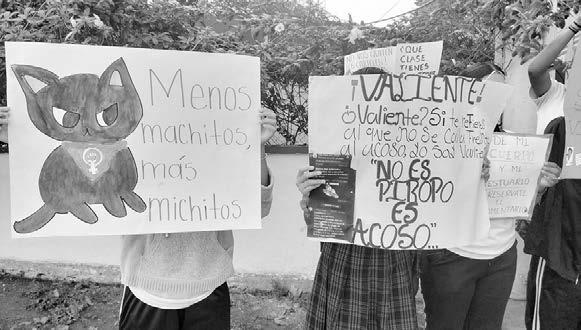 Menos
machitos,
más
michitos
¡VALIENTE!
¿Valiente? Si te
al que no se Calla frente
al acoso
"NO ES
PIROPO
ES
ACOSO"...
¿QUE
CLASE
TIENES
DE MI
CUERPO
Y MI
VESTUARIO
RESERVATE
EL
COMENTARIO